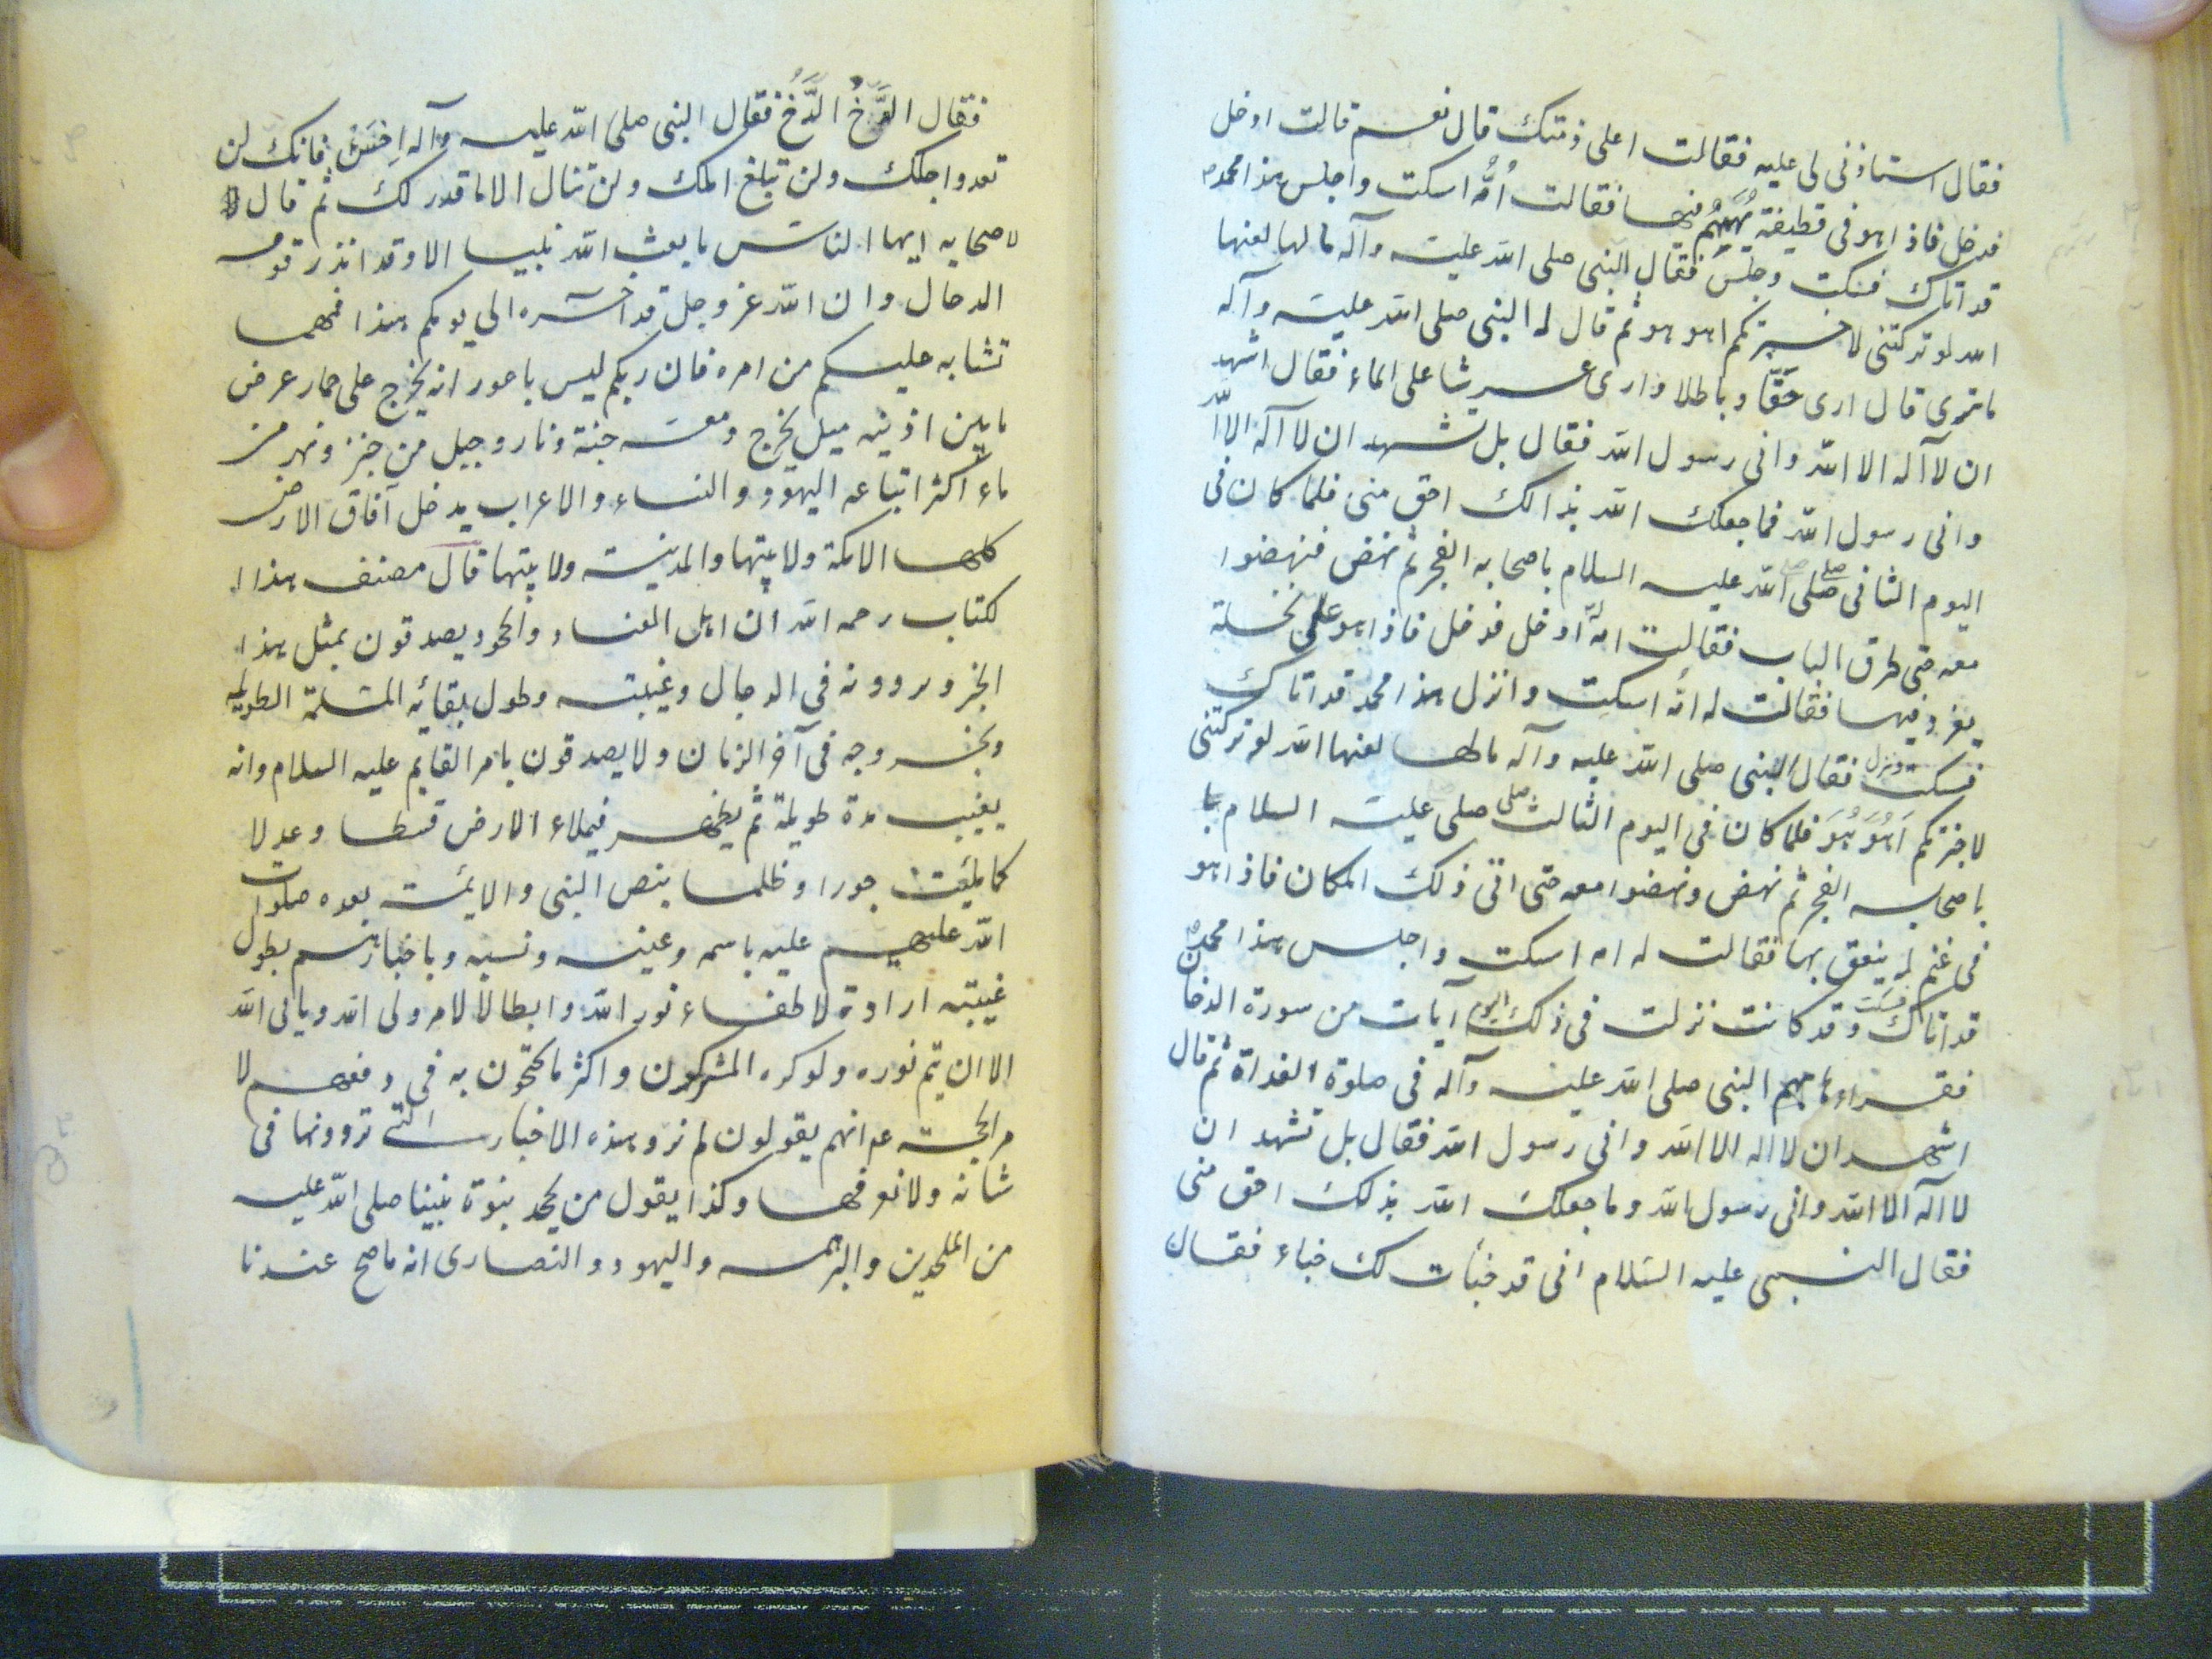 فقال استاذنى لى عليه فقالت اعلى ذمتك قال نعم قالت ادخل
فدخل فاذا هو فى قطيفة يهينم فيها فقالت اُمُّه اسكت واجلس هذا محمد
قد اتاك فسكت وجلس فقال النبى صلى الله عليه وآله ما لها لعنها
الله لو تركتنى لاخبرتكم اهو هو ثم قال له النبى صلى الله عليه وآله
ما ترى قال ارى حقّا وباطلا وارى عرشا على الماء فقال اشهد
ان لا آله الا الله وانى رسول الله فقال بل تشهد ان لا اله الا الله
وانى رسول الله فما جعلك الله بذالك احق منى فلما كان فى
اليوم الثانى صلى الله عليه السلام باصحابه الفجر ثم نهض فنهضوا
معه حتى طرق الباب فقالت امه ادخل فدخل فاذا هو على نخلة
يغرد فيها فقالت له امّه اسكت وانزل هذا محمد قد اتاك
فسكت ونزل فقال النبى صلى الله عليه وآله مالها لعنها الله لو تركتنى
لاخبرتكم اَهُوَ هُوَ فلما كان فى اليوم الثالث صلى عليه السلام با
باصحابه الفجر ثم نهض ونهضوا معه حتى اتى ذلك المكان فاذا هو
فى غنم له ينعق بها فقالت له امه اسكت واجلس هذا محمد
قد اتاك فسكت وقد كانت نزلت فى ذلك اليوم آيات من سورة الدخان
فقراها بهم النبى صلى الله عليه وآله فى صلوة الغداة ثم قال
اشهد ان لا اله الا الله وانى رسول الله فقال بل تشهد ان
لا آله الا الله وانى رسول الله وما جعلك الله بذلك احق منى
فقال النبى عليه السّلام انى قد خبأت لك خباء فقال
فقال الدَّخُ الدَّخُ فقال النبى صلى الله عليه وآله اِخسَئ فانك لن
تعدو اجلك ولن تبلغ املك ولن تنال الا ما قدر لك ثم قال
لاصحابه ايها الناس ما بعث الله نبيا الا وقد انذر قومه
الدجال وان الله عز وجل قد اخره الى يومكم هذا فمهما
تشابه عليكم من امره فان ربكم ليس باعور انه يخرج على حمار عرض
ما بين اذنيه ميل يخرج ومعه جنة ونار وجبل من خبز ونهر من
ماء اكثر اتباعه اليهود والنساء والاعراب يدخل آفاق الارض
كلها الا مكة ولابيتها والمدينة ولابيتها قال مصنف هذا ا
لكتاب رحمه الله ان اهل العناد والجحود يصدقون بمثل هذا
الخبر ويروونه فى الدجال وغيبته وطول بقائه المدة الطويلة
وبخروجه فى آخر الزمان ولا يصدقون بامر القايم عليه السلام وانه
يغيب مدة طويلة ثم يظهر فيملاء الارض قسطا وعدلا
كما ملئت جورا وظلما بنص النبى والايمة بعده صلوات
الله عليهم عليه باسمه وعينه ونسبه وباخبارهم بطول
غيبته ارادة لاطفاء نور الله وابطالا لامر ولى الله ويابى الله
الا ان يتم نوره ولوكره المشركون واكثر ما يحتجون به فى دفعهم لا
مر الحجة ع انهم يقولون لم نرو هذه الاخبار التى تروونها فى
شانه ولا نعرفها وكذا يقول من يجحد بنبوة نبينا صلى الله عليه
من الملحدين والبراهمه واليهود والنصارى انه ما صح عندنا